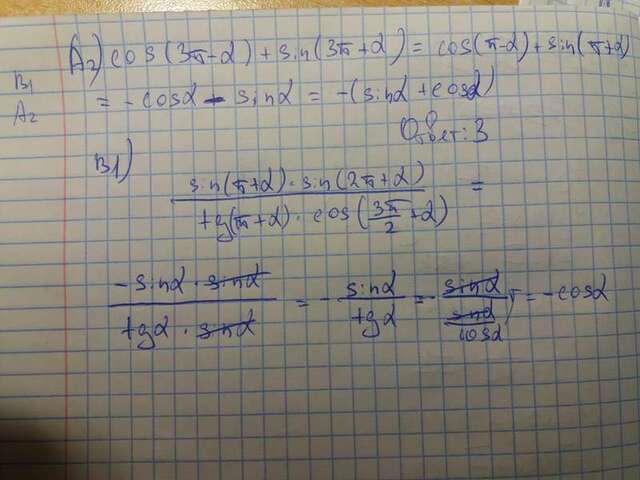 A2) cos(3π-α)+sin(3π+α)=cos(π-α)+sin(π+α)
B1
= -cosα - sinα = -(sinα+cosα)
A2
Ответ: 3
B1)
sin(π+α)·sin(2π+α)
=
tg(π+α)·cos(3π/2+α)
-sinα·sinα / tgα·sinα = - sinα/tgα = - sinα / (sinα/cosα) = -cosα